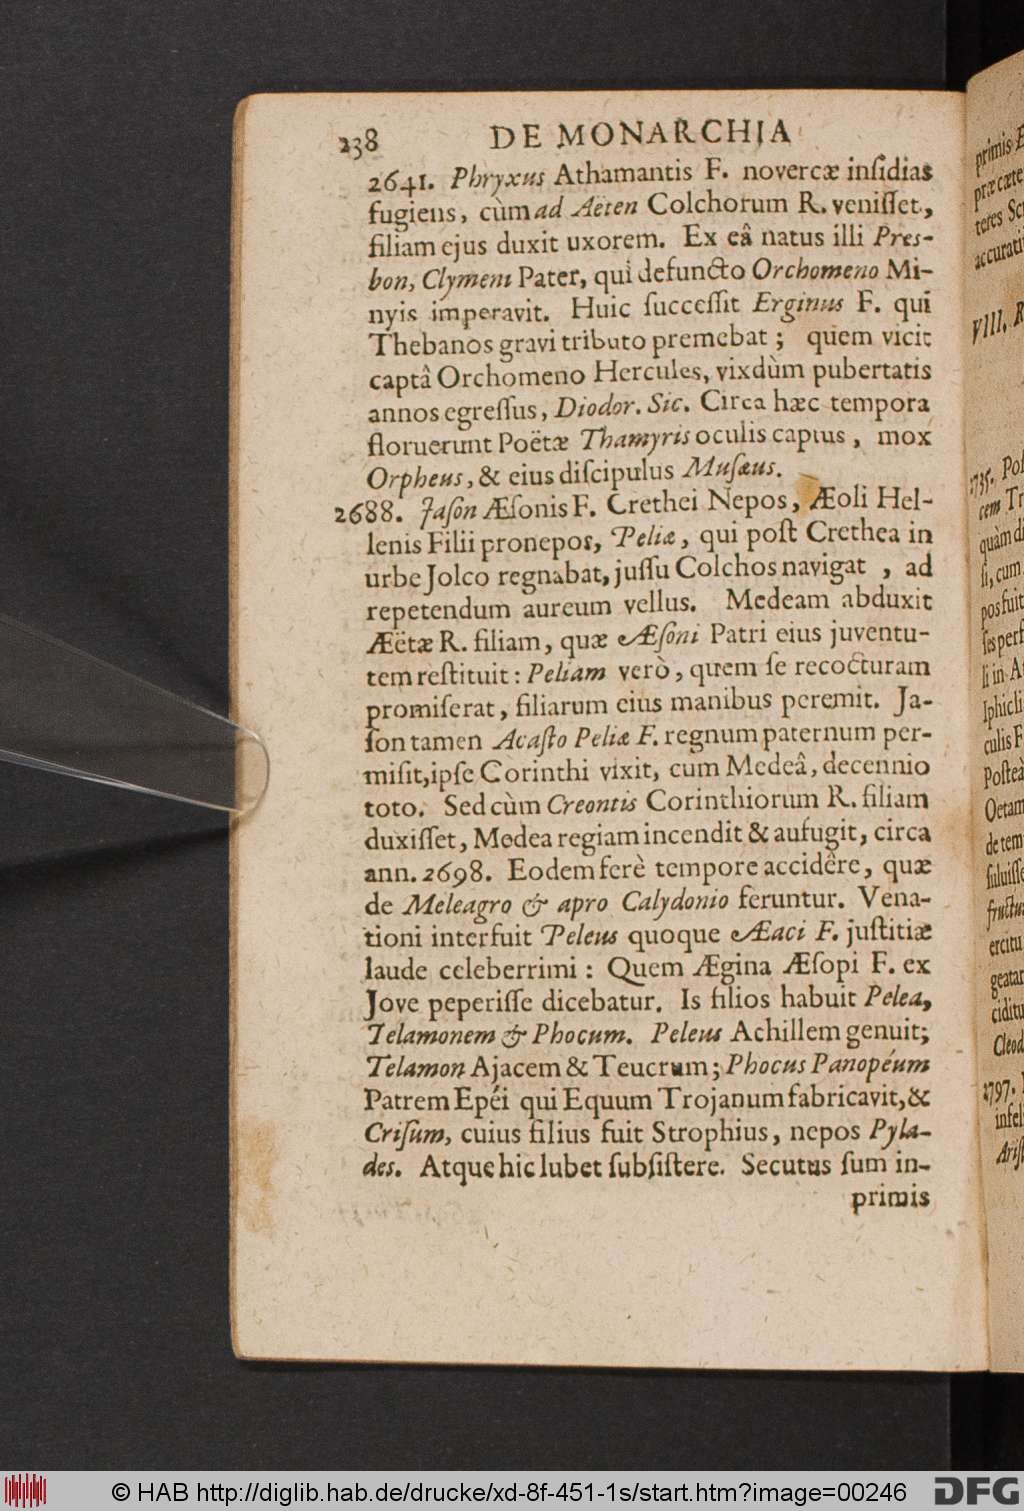 238 DE MONARCHIA
2641. Phryxus Athamantis F. novercæ inſidias
fugiens, cùm ad Aëten Colchorum R. veniſſet,
filiam ejus duxit uxorem. Ex eâ natus illi Pres-
bon, Clymeni Pater, qui defuncto Orchomeno Mi-
nyis imperavit. Huic ſucceſſit Erginus F. qui
Thebanos gravi tributo premebat; quem vicit
captâ Orchomeno Hercules, vixdùm pubertatis
annos egreſſus, Diodor. Sic. Circa hæc tempora
floruerunt Poëtæ Thamyris oculis captus, mox
Orpheus, & eius diſcipulus Muſæus.
2688. Jaſon Æſonis F. Crethei Nepos, Æoli Hel-
lenis Filii pronepos, Peliæ, qui poſt Crethea in
urbe Jolco regnabat, juſſu Colchos navigat, ad
repetendum aureum vellus. Medeam abduxit
Æëtæ R. filiam, quæ Æſoni Patri eius juventu-
tem reſtituit: Peliam verò, quem ſe recocturam
promiſerat, filiarum eius manibus peremit. Ja-
ſon tamen Acaſto Peliæ F. regnum paternum per-
miſit, ipſe Corinthi vixit, cum Medeâ, decennio
toto. Sed cùm Creontis Corinthiorum R. filiam
duxiſſet, Medea regiam incendit & aufugit, circa
ann. 2698. Eodem ferè tempore accidêre, quæ
de Meleagro & apro Calydonio feruntur. Vena-
tioni interfuit Peleus quoque Æaci F. juſtitiæ
laude celeberrimi: Quem Ægina Æſopi F. ex
Jove peperiſſe dicebatur. Is filios habuit Pelea,
Telamonem & Phocum. Peleus Achillem genuit;
Telamon Ajacem & Teucrum; Phocus Panopéum
Patrem Epéi qui Equum Trojanum fabricavit, &
Criſum, cuius filius fuit Strophius, nepos Pyla-
des. Atque hic lubet ſubſiſtere. Secutus ſum in-
primis
primis
præcæte
teres
accurati
VIII. R
2735. Pol
cem Tr
quàm di
ſi, cum
pos fuit
ſes perf
li in A
Iphicli
culis F
Poſteà
Oetam
de tem
fructu
ercitu
geatar
ciditu
Cleod
2797.
infel
Ariſt
© HAB http://diglib.hab.de/drucke/xd-8f-451-1s/start.htm?image=00246 DFG